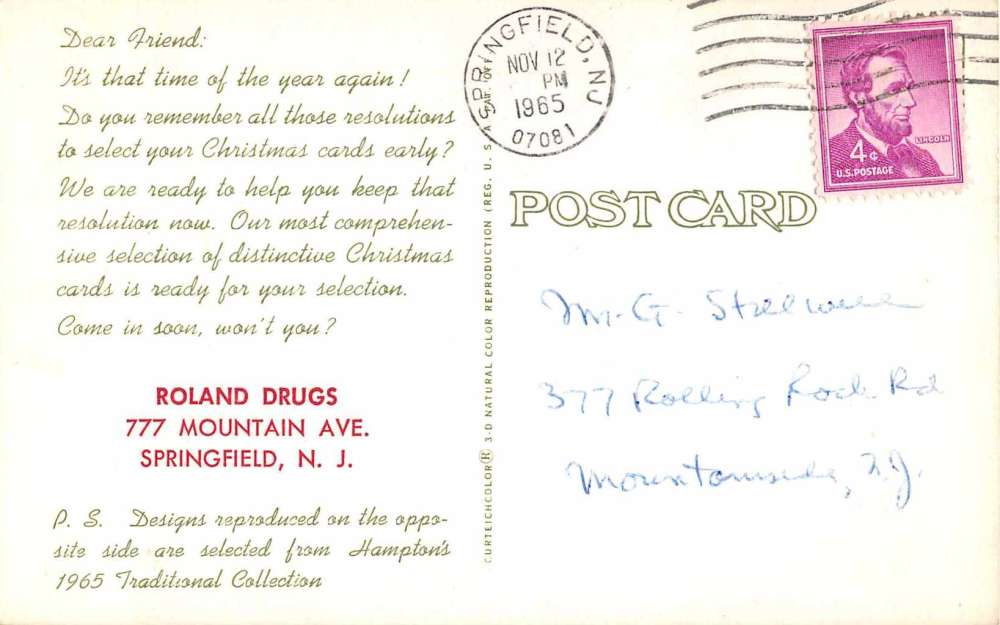 Dear Friend:
It's that time of the year again!
Do you remember all those resolutions
to select your Christmas cards early?
We are ready to help you keep that
resolution now. Our most comprehen-
sive selection of distinctive Christmas
cards is ready for your selection.
Come in soon, won't you?
ROLAND DRUGS
777 MOUNTAIN AVE.
SPRINGFIELD, N. J.
P. S. Designs reproduced on the oppo-
site side are selected from Hampton's
1965 Traditional Collection
CURTEICHCOLOR® 3-D NATURAL COLOR REPRODUCTION (REG. U. S. PAT. OFF.)
SPRINGFIELD, NJ
NOV 12
PM
1965
07081
LINCOLN
4¢
U.S. POSTAGE
POST CARD
M. G.
377 Rolling Rock Rd
Mountainside, N.J.